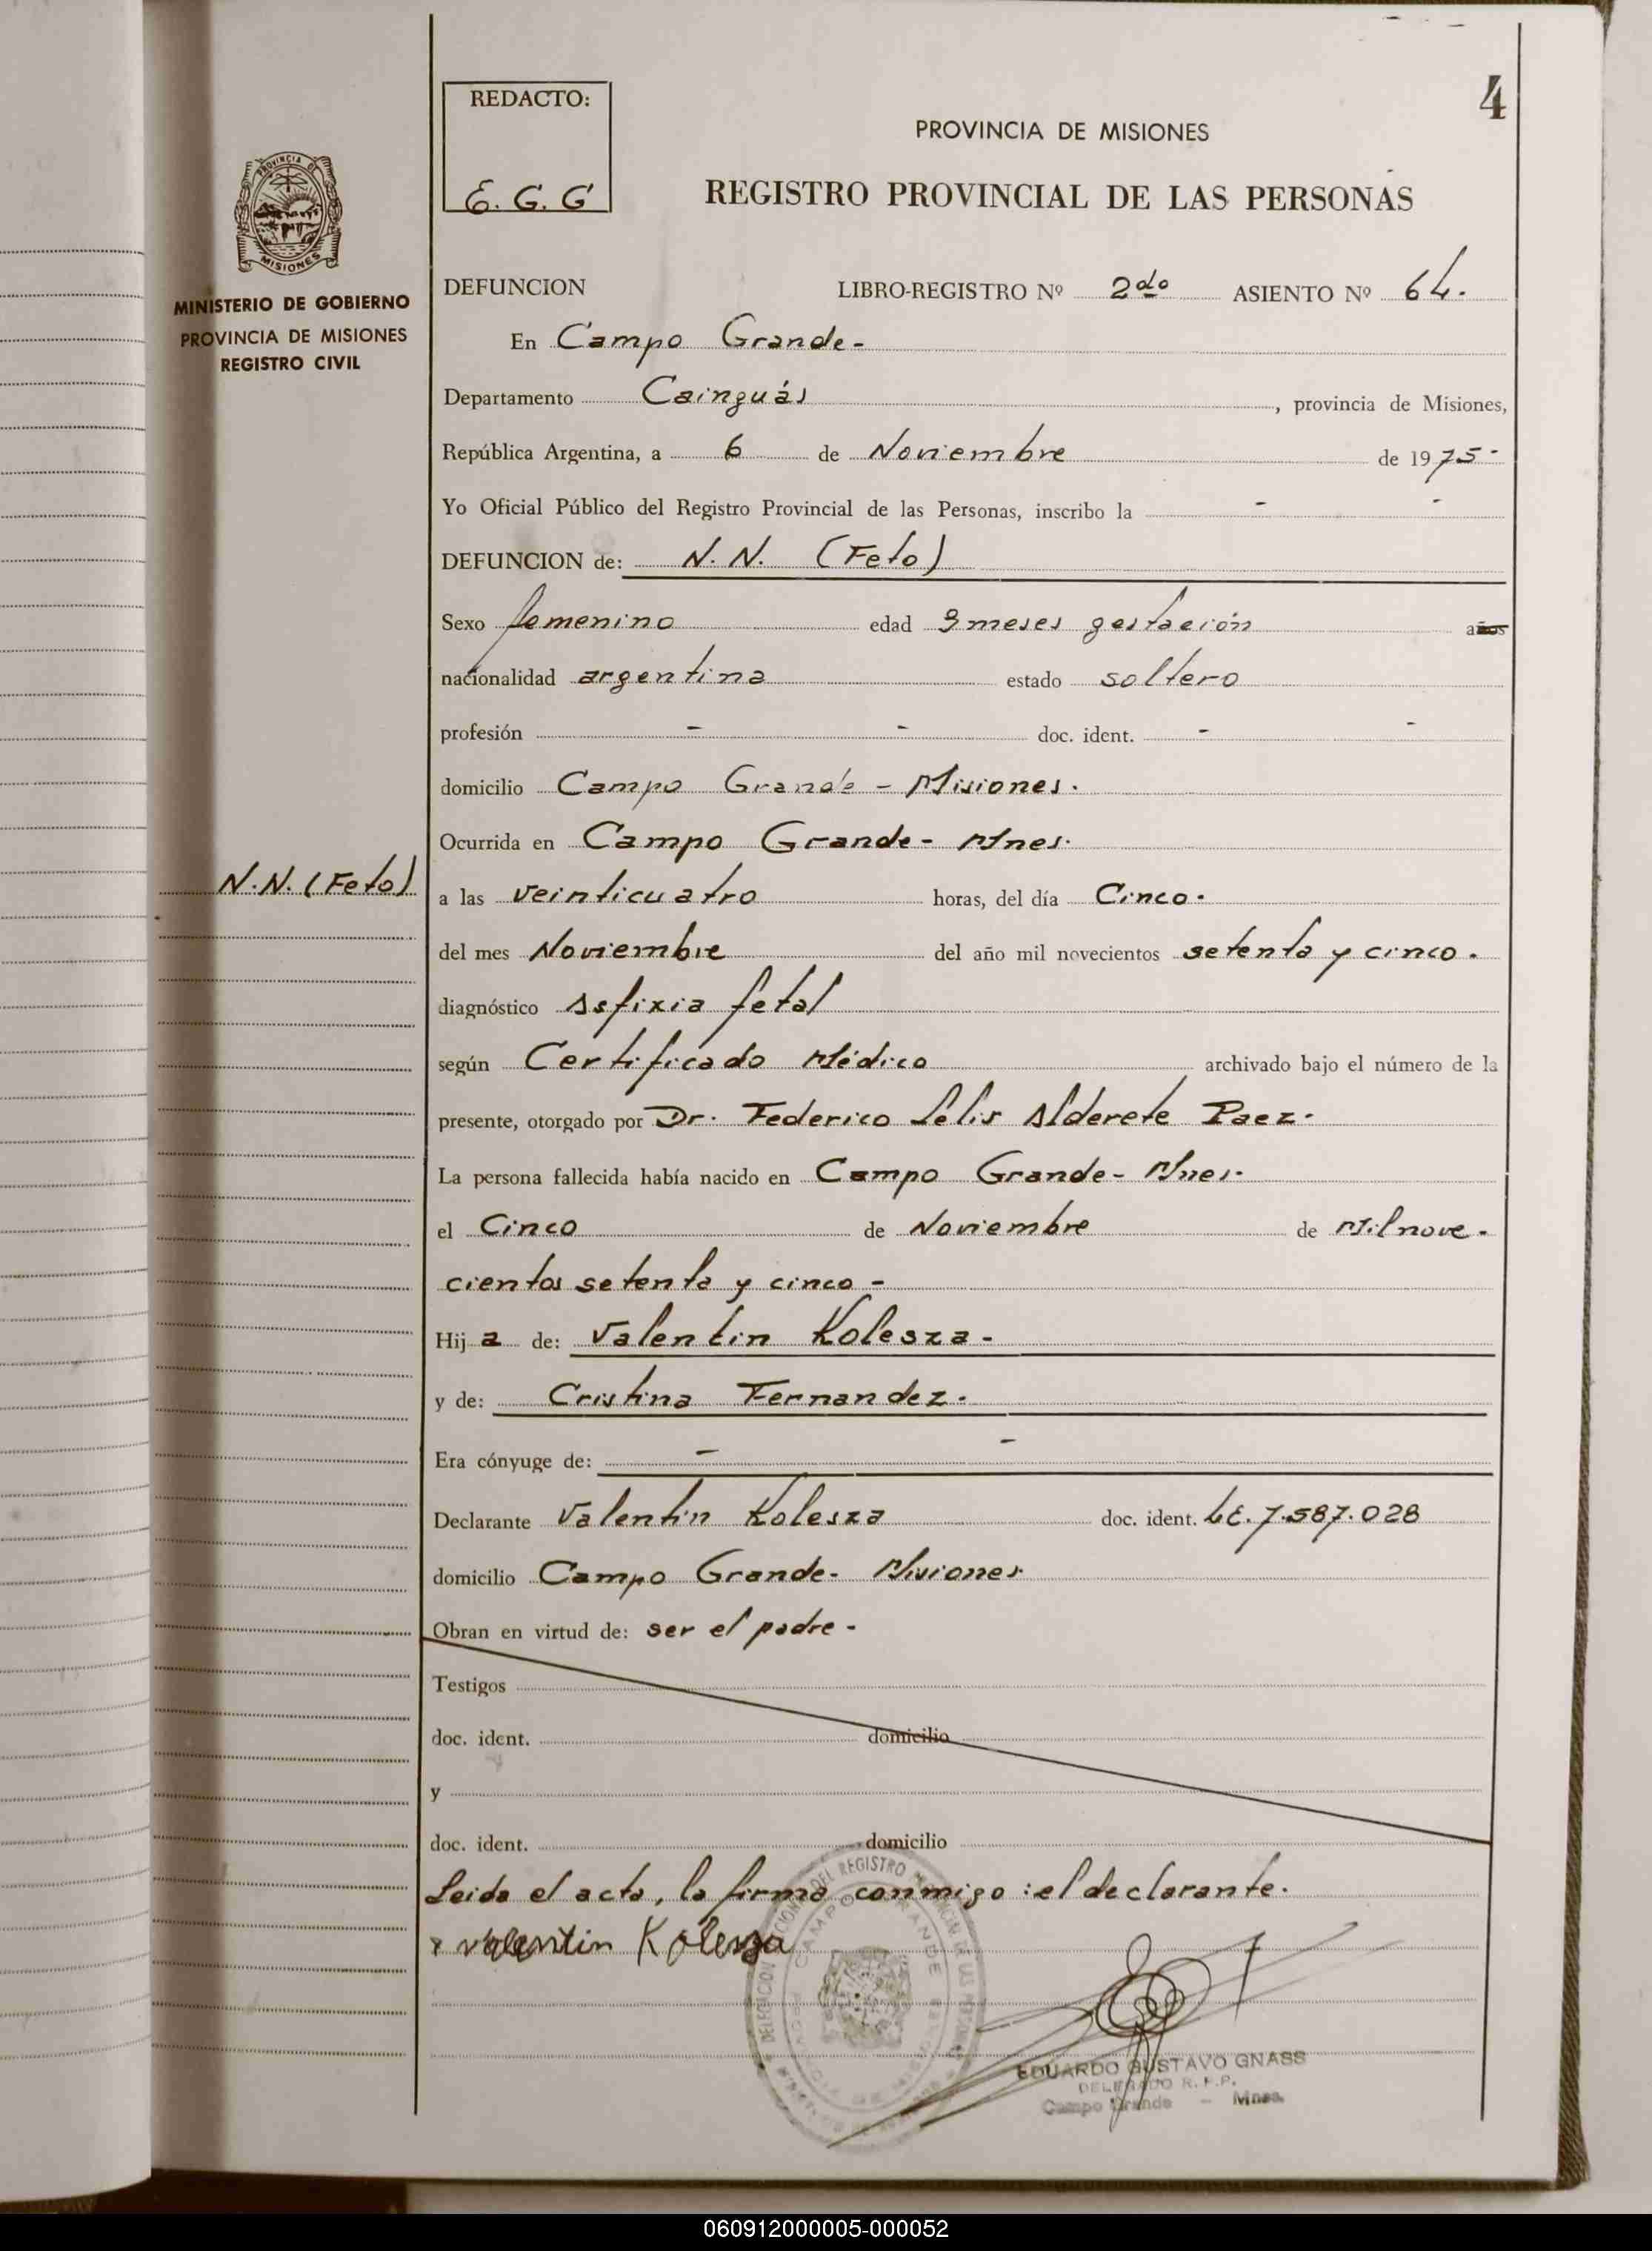 4
REDACTO:
E. G. G
PROVINCIA DE MISIONES
REGISTRO PROVINCIAL DE LAS PERSONAS
PROVINCIA DE
MISIONES
MINISTERIO DE GOBIERNO
PROVINCIA DE MISIONES
REGISTRO CIVIL
DEFUNCION LIBRO-REGISTRO Nº 2do ASIENTO Nº 64.
En Campo Grande-
Departamento Cainguás, provincia de Misiones,
República Argentina, a 6 de Noviembre de 1975-
Yo Oficial Público del Registro Provincial de las Personas, inscribo la - -
DEFUNCION de: N. N. (Feto)
Sexo femenino edad 9 meses gestación años
nacionalidad argentina estado soltero
profesión - - doc. ident. - -
domicilio Campo Grande - Misiones.
Ocurrida en Campo Grande- Mnes.
N.N. (Feto)
a las veinticuatro horas, del día Cinco.
del mes Noviembre del año mil novecientos setenta y cinco.
diagnóstico Asfixia fetal
según Certificado Médico archivado bajo el número de la
presente, otorgado por Dr. Federico Lelis Alderete Paez.
La persona fallecida había nacido en Campo Grande- Mnes.
el Cinco de Noviembre de Milnove-
cientos setenta y cinco -
Hija de: Valentin Kolesza -
y de: Cristina Fernandez.
Era cónyuge de: - -
Declarante Valentin Kolesza doc. ident. LE. 7.587.028
domicilio Campo Grande- Misiones
Obran en virtud de: ser el padre -
Testigos
doc. ident. domicilio
y
doc. ident. domicilio
Leida el acta, la firma conmigo: el declarante.
x Valentin Kolesza
CAMPO GRANDE
EDUARDO GUSTAVO GNASS
DELEGADO R. P. P.
Campo Grande - Mnes.
060912000005-000052